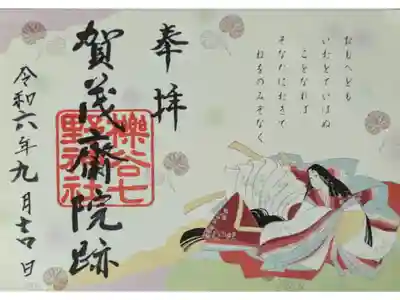 おもへども
いむとていはぬ
ことなれば
そなたにむきて
ねをのみぞなく
奉拝
賀茂齋院跡
櫟谷七
野神社
令和六年九月吉日